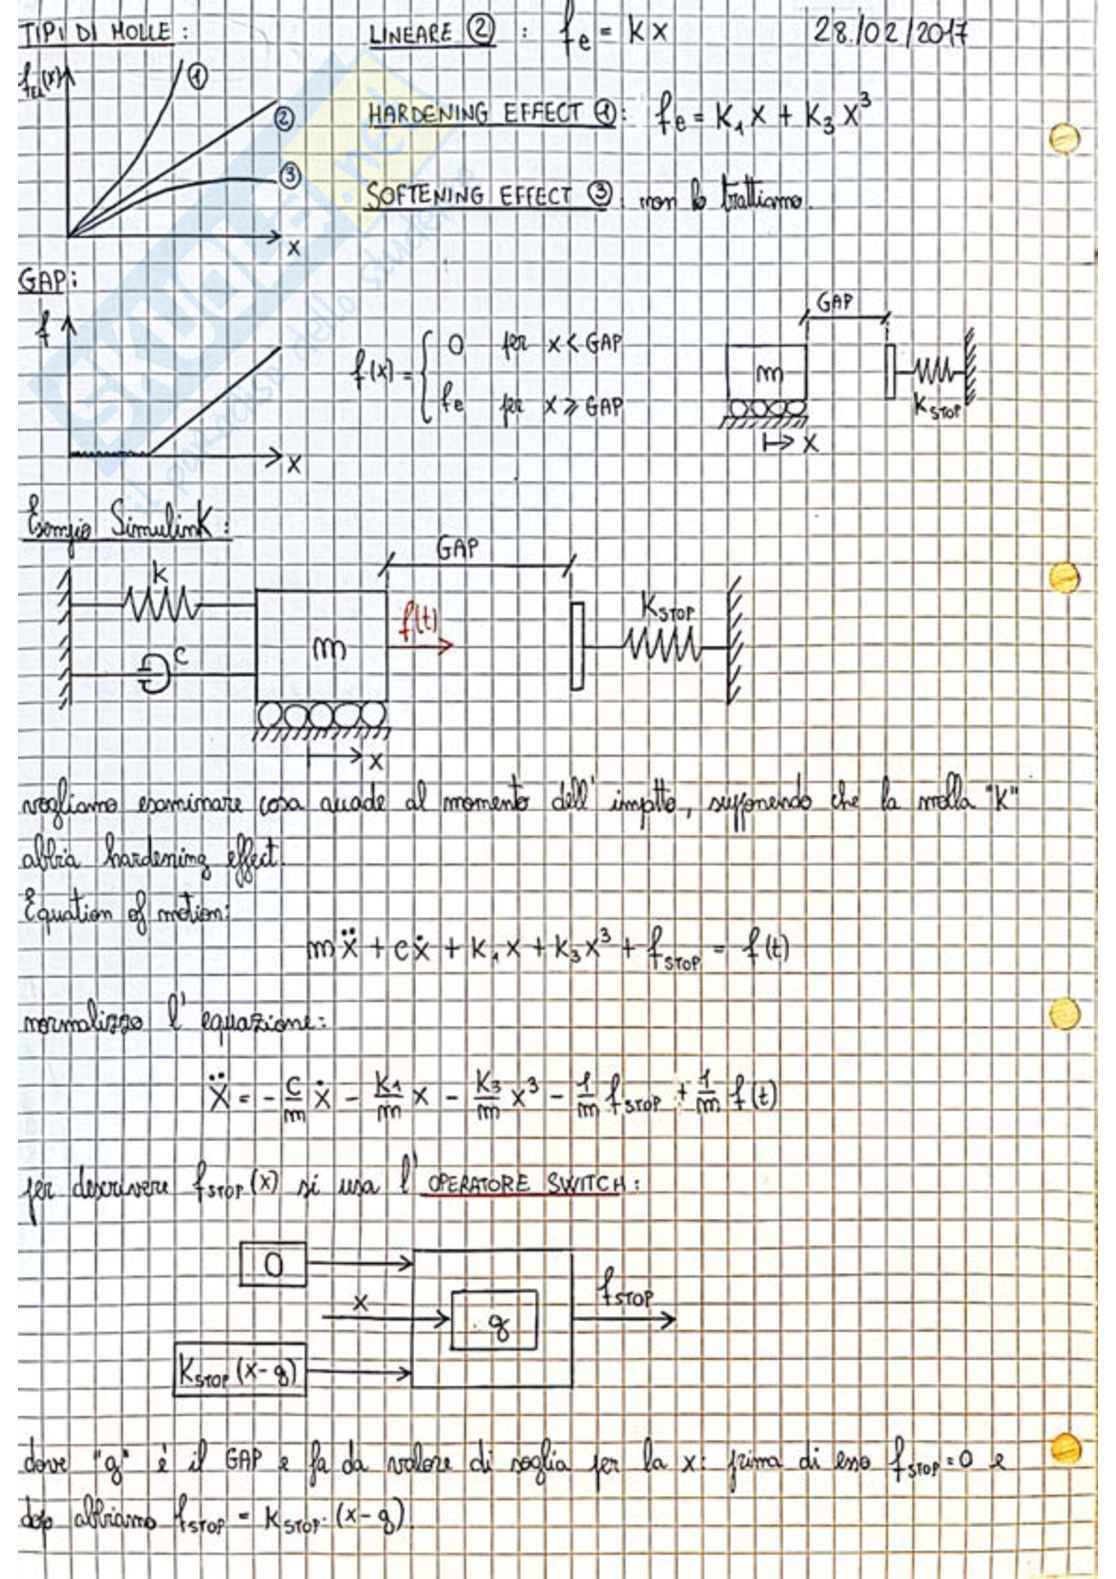 TIPI DI MOLLE : LINEARE ② : fe = Kx 28/02/2017
fel(x) ①
② HARDENING EFFECT ①: fe = K₁x + K₃x³
③ SOFTENING EFFECT ③: non lo trattiamo.
x
GAP:
GAP
f
f(x) = { 0 per x < GAP
fe per x ⩾ GAP
m
KSTOP
x
x
Esempio Simulink :
GAP
K
KSTOP
f(t)
m
c
x
vogliamo esaminare cosa accade al momento dell' impatto, supponendo che la molla "K"
abbia hardening effect.
Equation of motion:
mẍ + cẋ + K₁x + K₃x³ + fSTOP = f(t)
normalizzo l' equazione:
ẍ = - c/m ẋ - K₁/m x - K₃/m x³ - 1/m fSTOP + 1/m f(t)
per descrivere fSTOP(x) si usa l' OPERATORE SWITCH :
0
x
g
fSTOP
KSTOP (x-g)
dove "g" è il GAP e fa da valore di soglia per la x: prima di esso fSTOP = 0 e
dopo abbiamo fSTOP = KSTOP·(x-g).
SKUOLA.net
il paradiso dello studente